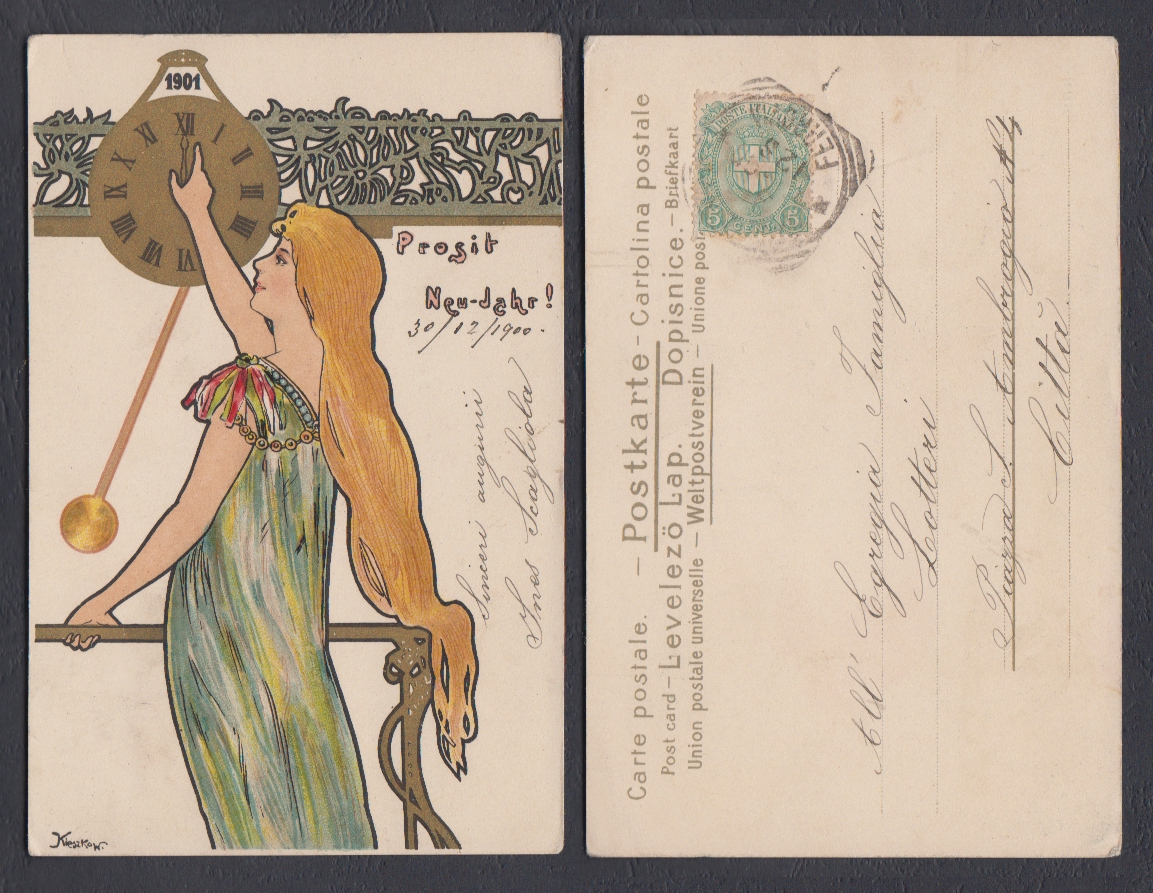 1901
XII
I
II
III
IIII
V
VI
VII
VIII
IX
X
XI
Prosit
Neu-Jahr!
30/12/1900.
Sinceri augurii
Ines Scagliola
Kieszkow.
Carte postale. — Postkarte - Cartolina postale
Post card - Levelező Lap. Dopisnice. - Briefkaart
Union postale universelle - Weltpostverein - Unione post
POSTE ITALIANE
5 CENT. 5
All' Egregia Famiglia
Lotteri
Piazza S. Ambrogio
Città